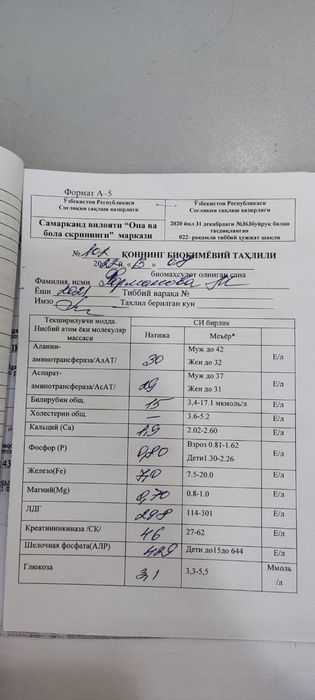 Формат А–5
Ўзбекистон Республикаси
Соғлиқни сақлаш вазирлиги
Самарканд вилояти "Она ва
бола скрининги" маркази
Ўзбекистон Республикаси
Соғлиқни сақлаш вазирлиги
2020 йил 31 декабрдаги №363буйруқ билан
тасдиқланган
022- рақамли тиббий ҳужжат шакли
№ ҚОННИНГ БИОКИМЁВИЙ ТАҲЛИЛИ
2022й. « 15 » 08
биомаҳсулот олинган сана
Фамилия, исми
Ёши 2021 Тиббий варақа №
Имзо Таҳлил берилган кун
Текширилувчи модда. Нисбий атом ёки молекуляр массаси Натижа СИ бирлик
Меъёр*
Аланин-аминотрансфераза/АлАТ/ 30 Муж до 42 Жен до 32 Е/л
Аспарат-аминотрансфераза/АсАТ/ 29 Муж до 37 Жен до 31 Е/л
Билирубин общ. 15 3,4-17.1 мкмоль/л Е/л
Холестерин общ. — 3.6-5.2 Е/л
Кальций (Са) 1,9 2.02-2.60 Е/л
Фосфор (Р) 0,80 Взроз 0.81-1.62 Дети1.30-2.26 Е/л
Железо(Fe) 7,0 7.5-20.0 Е/л
Магний(Mg) 0,70 0.8-1.0 Е/л
ЛДГ 298 114-301 Е/л
Креатининкиназа /СК/ 46 27-62 Е/л
Шелочная фосфата(АЛР) 429 Дети до15до 644 Е/л
Глюкоза 3,1 3,3-5,5 Ммоль /л